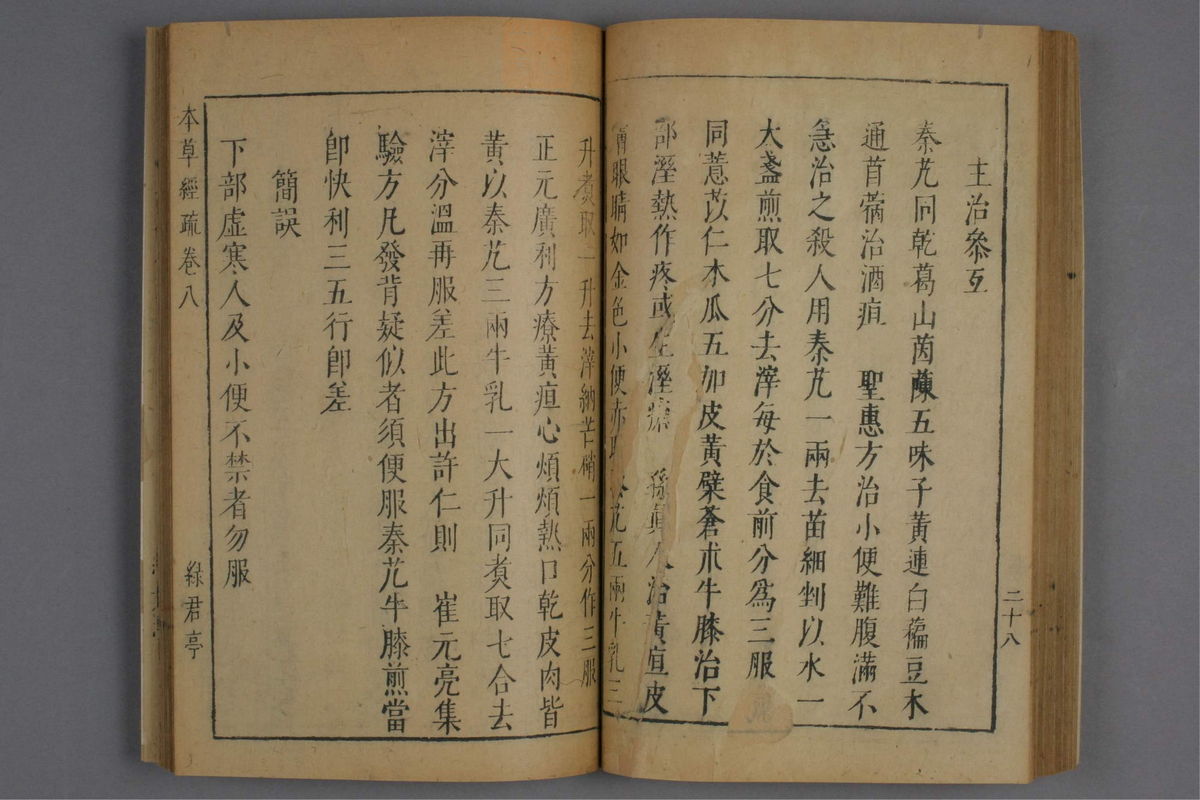 主治參互
秦艽同乾葛山茵蔯五味子黃連白藊豆木
通苜蓿治酒疸　聖惠方治小便難腹滿不
急治之殺人用秦艽一兩去苗細剉以水一
大盞煎取七分去滓每於食前分爲三服
同薏苡仁木瓜五加皮黃蘗蒼朮牛膝治下
部溼熱作疼或生溼瘡　孫眞人治黃疸皮
眼睛如金色小便赤取艽五兩牛乳三
二十八
升煑取一升去滓納芒硝一兩分作三服
正元廣利方療黃疸心煩熱口乾皮肉皆
黃以秦艽三兩牛乳一大升同煑取七合去
滓分溫再服差此方出許仁則　崔元亮集
驗方凡發背疑似者須便服秦艽牛膝煎當
卽快利三五行卽差
簡誤
下部虛寒人及小便不禁者勿服
本草經疏卷八
綠君亭